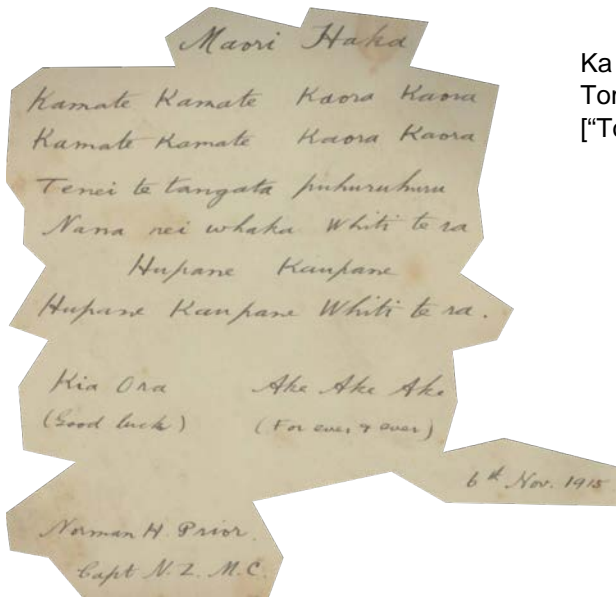 Maori Haka
Kamate Kamate Kaora Kaora
Kamate Kamate Kaora Kaora
Tenei te tangata puhuruhuru
Nana nei whaka Whiti te ra
Hupane Kaupane
Hupane Kaupane Whiti te ra.
Kia Ora Ake Ake Ake
(Good luck) (For ever & ever)
6th Nov. 1915
Norman H Prior.
Capt N. Z. M. C.
Ka